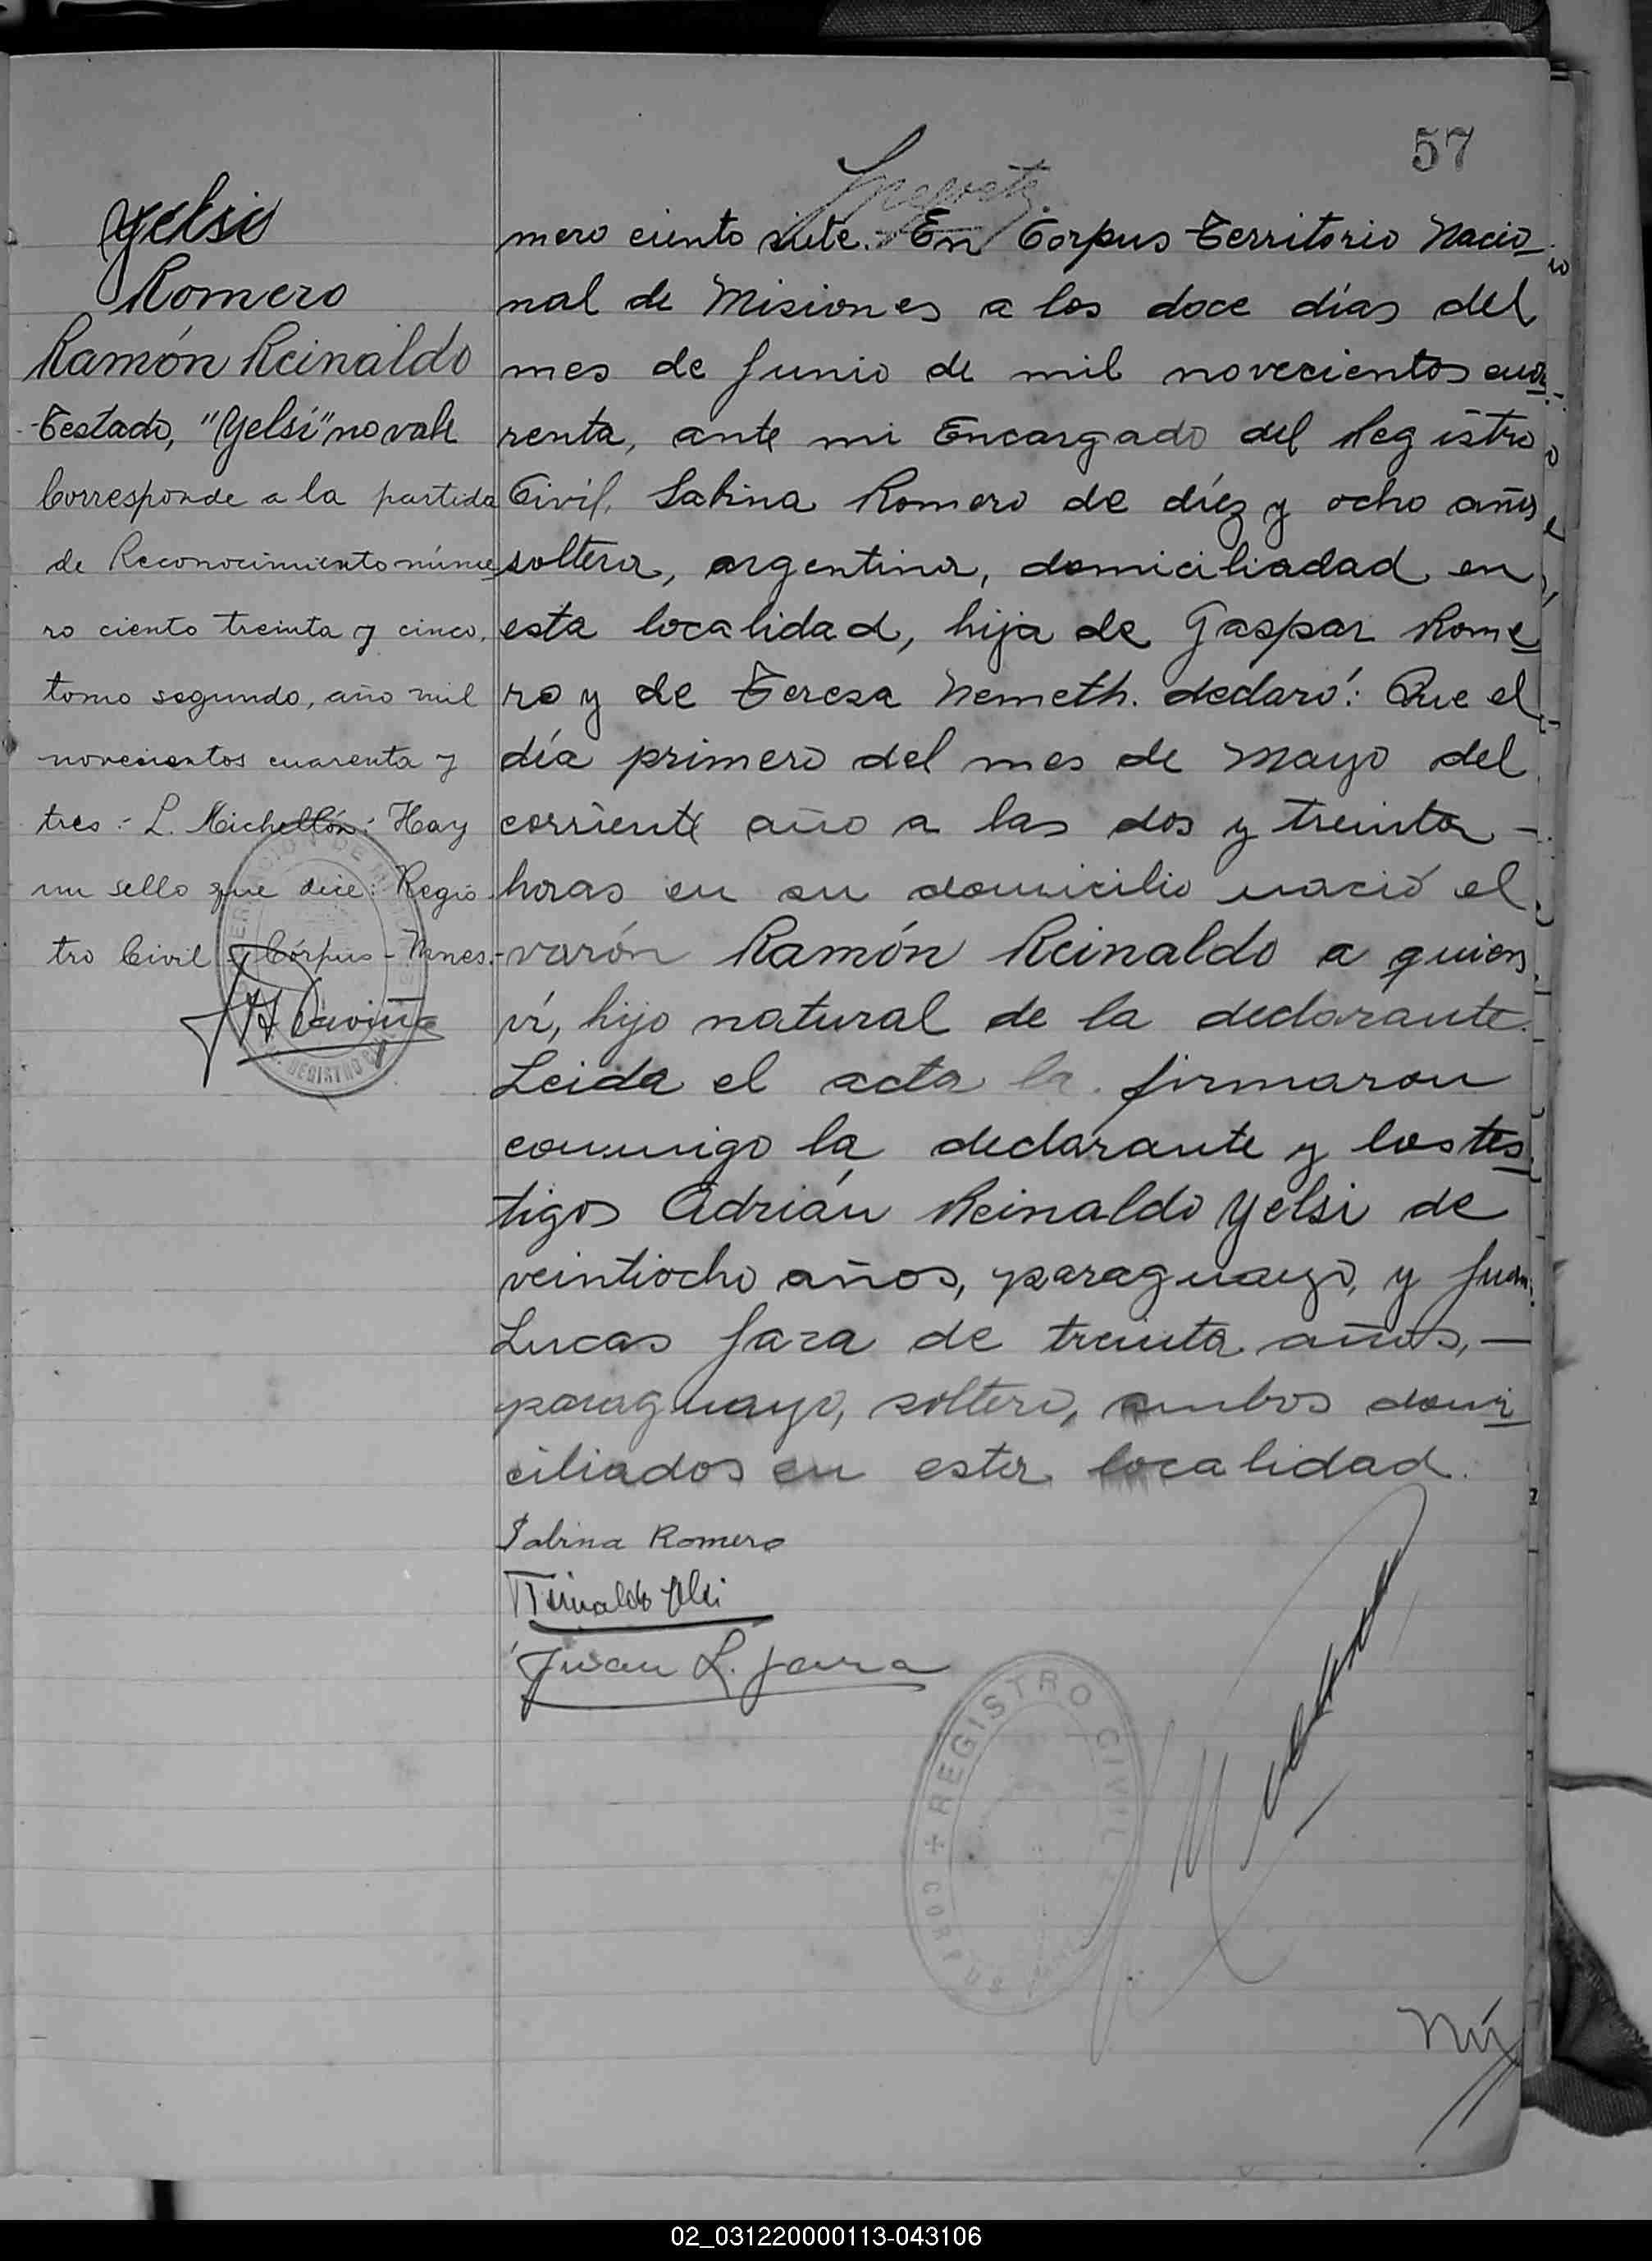 57
Yelsi
Romero
Ramón Reinaldo
Testado, "Yelsi" no vale
Corresponde a la partida
de Reconocimiento núme
ro ciento treinta y cinco,
tomo segundo, año mil
novecientos cuarenta y
tres:- L. Michellón: Hay
un sello que dice: Regis
tro Civil - Córpus - Mnes.-
mero ciento siete.- En Corpus Territorio Nacio
nal de Misiones a los doce días del
mes de Junio de mil novecientos cua
renta, ante mi Encargado del Registro
Civil, Sabina Romero de díez y ocho años
soltera, argentina, domiciliadad en
esta localidad, hija de Gaspar Rome
ro y de Teresa Nemeth. declaró: Que el
día primero del mes de Mayo del
corriente año a las dos y treinta -
horas en su domicilio nació el
varón Ramón Reinaldo a quien
ví, hijo natural de la declarante.
Leida el acta la firmaron
conmigo la declarante y los tes
tigos Adrián Reinaldo Yelsi de
veintiocho años, paraguayo, y Juan
Lucas Jara de treinta años, -
paraguayo, soltero, ambos domi
ciliados en esta localidad.
Sabina Romero
Reinaldo Yelsi
Juan L. Jara
REGISTRO CIVIL
CORPUS
Nú
02_031220000113-043106